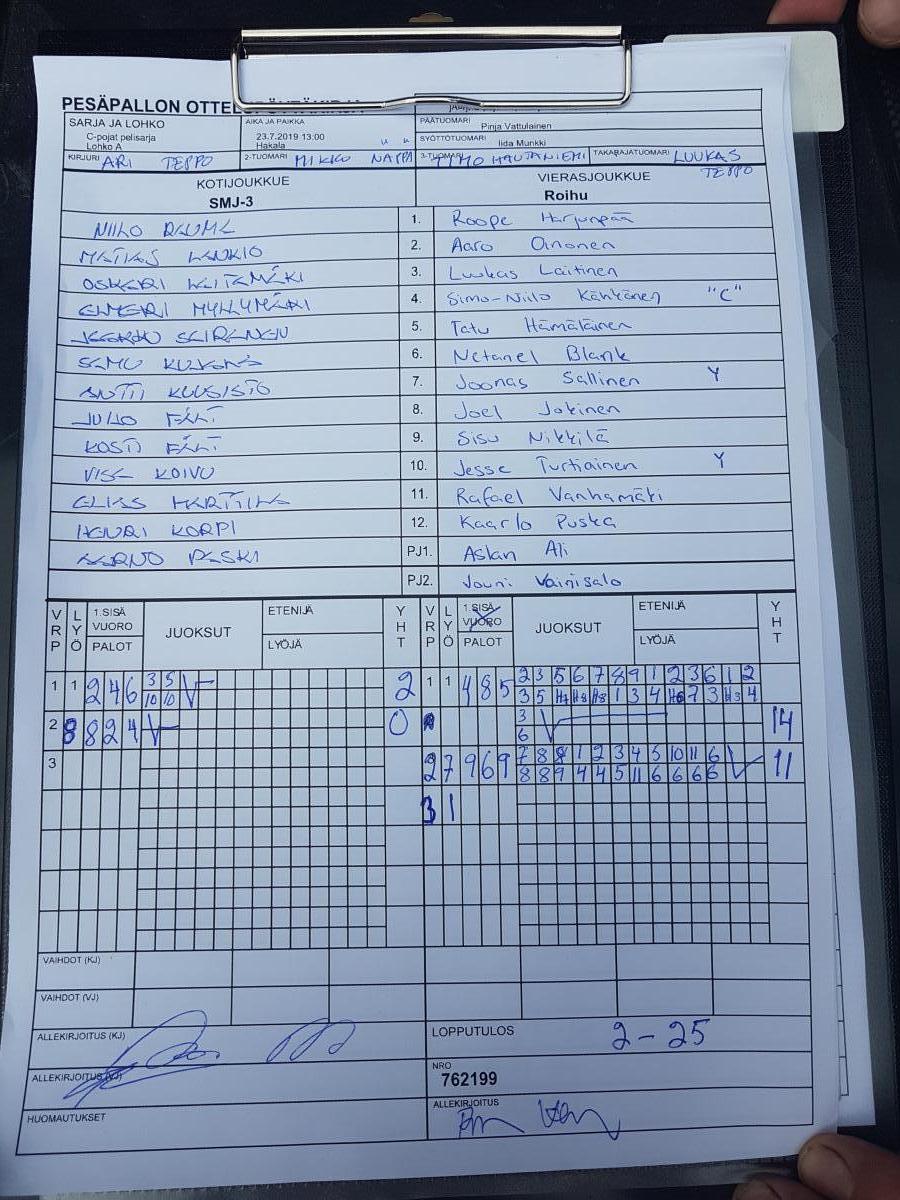 PESÄPALLON OTTE
SARJA JA LOHKO
C-pojat pelisarja
Lohko A
AIKA JA PAIKKA
23.7.2019 13:00
Hakala
PÄÄTUOMARI
Pinja Vattulainen
SYÖTTÖTUOMARI
Iida Munkki
KIRJURI ARI TEPPO
2-TUOMARI MIKKO NAPPA
3-TUOMARI TIMO HAUTANIEMI
TAKARAJATUOMARI LUUKAS TEPPO
KOTIJOUKKUE
SMJ-3
VIERASJOUKKUE
Roihu
NIILO RAUMA 1. Roope Harjunpää
MATIAS LANKIO 2. Aaro Oinonen
OSKARI 3. Luukas Laitinen
ELMERI MYLLYMÄKI 4. Simo-Niilo Kähkönen "C"
5. Tatu Hämäläinen
SAMU 6. Netanel Blank
ANTTI KUUSISTO 7. Joonas Sallinen Y
JUHO 8. Joel Jokinen
KOSTI 9. Sisu Nikkilä
KOIVU 10. Jesse Turtiainen Y
ELIAS MARTTILA 11. Rafael Vanhamäki
HENRI KORPI 12. Kaarlo Puska
AARNO PASKI PJ1. Aslan Ali
PJ2. Jouni Vainisalo
VRP LYÖ 1.SISÄ VUORO PALOT JUOKSUT ETENIJÄ LYÖJÄ YHT VRP LYÖ 1.SISÄ VUORO PALOT JUOKSUT ETENIJÄ LYÖJÄ YHT
1 1 2 4 6 3 5 2 1 1 4 8 5 2 3 5 6 7 8 9 1 2 3 6 1 2
10 10 3 5 H7 H8 H8 1 3 4 H6 7 3 H3 4
2 8 8 2 4 0 3 14
6
3 2 7 9 6 9 7 8 8 1 2 3 4 5 10 11 6 11
8 8 9 4 4 5 11 6 6 6 6
3 1
VAIHDOT (KJ)
VAIHDOT (VJ)
ALLEKIRJOITUS (KJ)
LOPPUTULOS 2-25
ALLEKIRJOITUS (VJ)
NRO
762199
HUOMAUTUKSET
ALLEKIRJOITUS